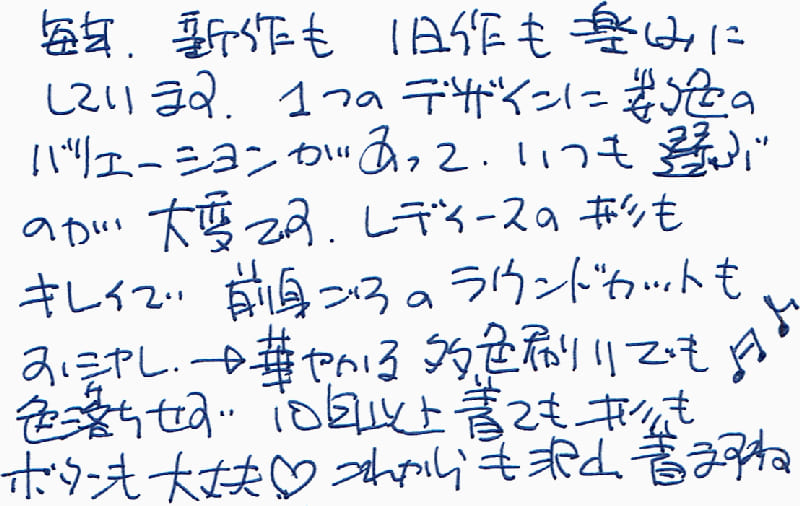 毎年、新作も 旧作も 楽しみに
しています。1つの デザインに 数色の
バリエーションがあって、いつも 選ぶ
のが 大変です。レディースの 形も
キレイで 前身ごろの ラウンドカットも
おしゃれ。→華やかな 多色刷りでも♪♪
色落ちせず 10回以上着ても 形も
ボタンも 大丈夫♡ これからも 沢山 着ますね